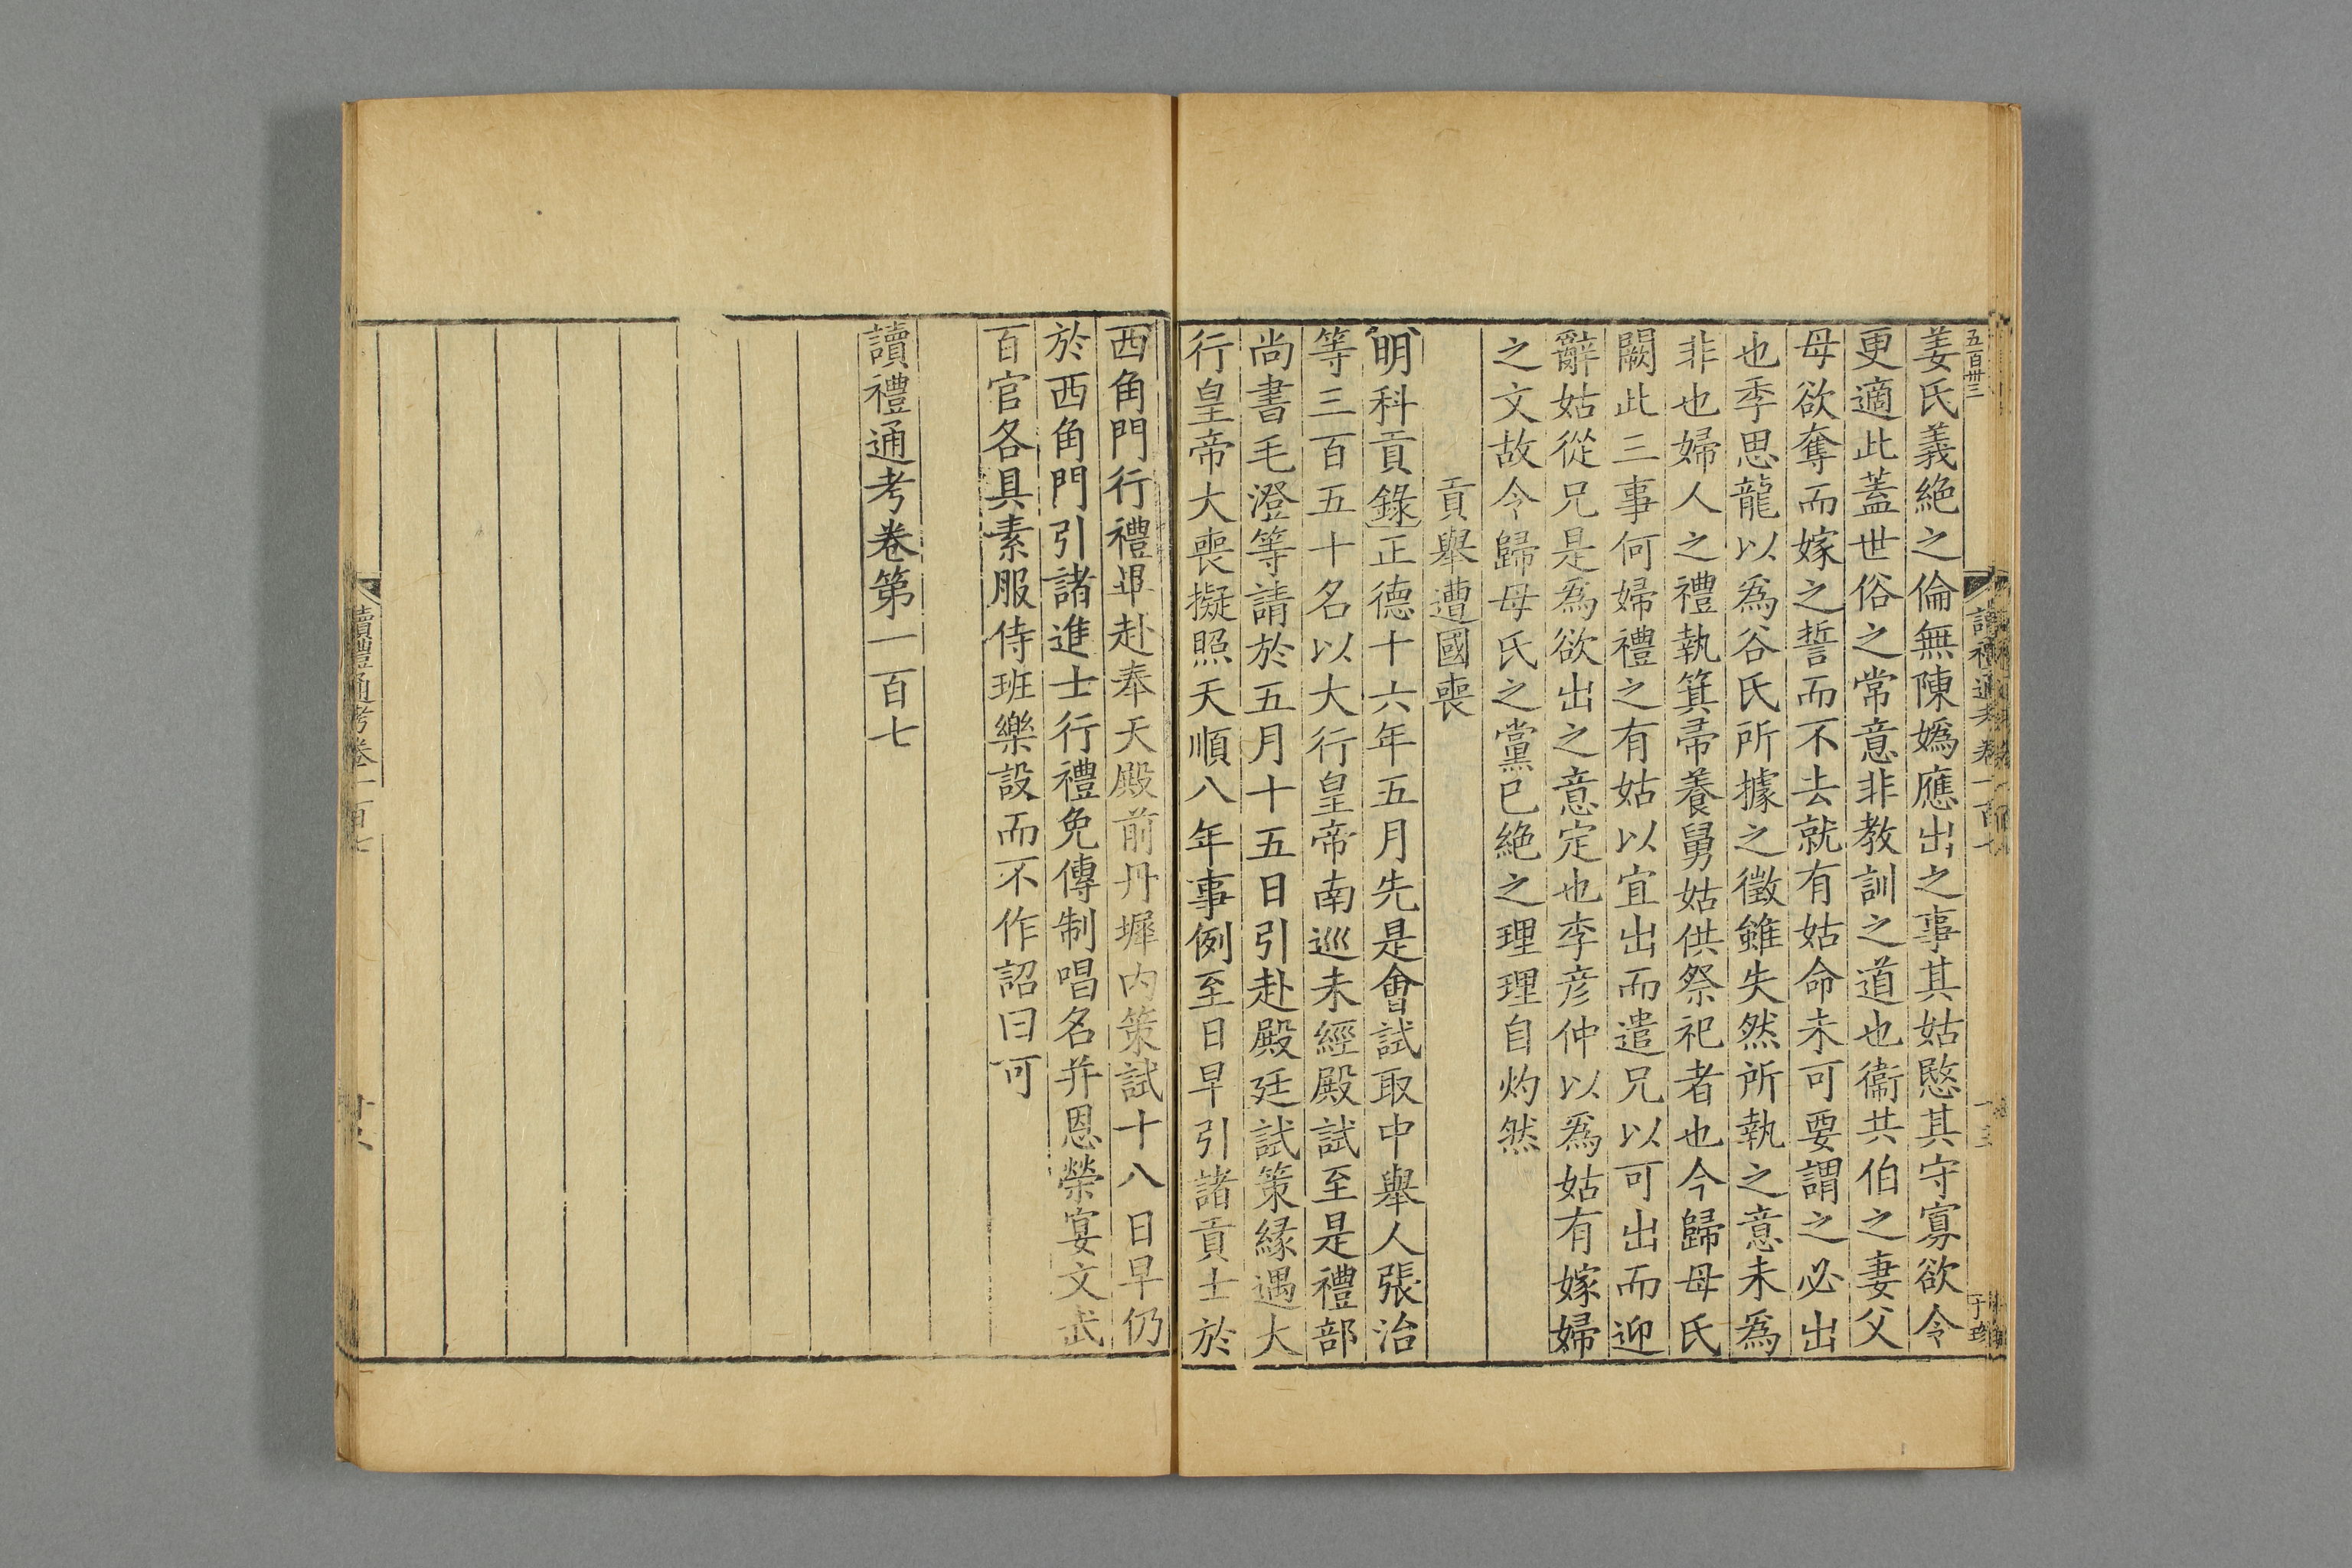 五百卅三
姜氏義絶之倫無陳嬀應出之事其姑愍其守寡欲令
更適此蓋世俗之常意非教訓之道也衞共伯之妻父
母欲奪而嫁之誓而不去就有姑命未可要謂之必出
也季思龍以爲谷氏所據之徵雖失然所執之意未爲
非也婦人之禮執箕帚養舅姑供祭祀者也今歸母氏
闕此三事何婦禮之有姑以宜出而遣兄以可出而迎
辭姑從兄是爲欲出之意定也李彦仲以爲姑有嫁婦
之文故令歸母氏之黨已絶之理理自灼然
貢舉遭國喪
明科貢錄正德十六年五月先是會試取中舉人張治
等三百五十名以大行皇帝南巡未經殿試至是禮部
尚書毛澄等請於五月十五日引赴殿廷試策縁遇大
行皇帝大喪擬照天順八年事例至日早引諸貢士於
西角門行禮畢赴奉天殿前丹墀内策試十八日早仍
於西角門引諸進士行禮免傳制唱名并恩榮宴文武
百官各具素服侍班樂設而不作詔曰可
讀禮通考卷第一百七
讀禮通考卷一百七